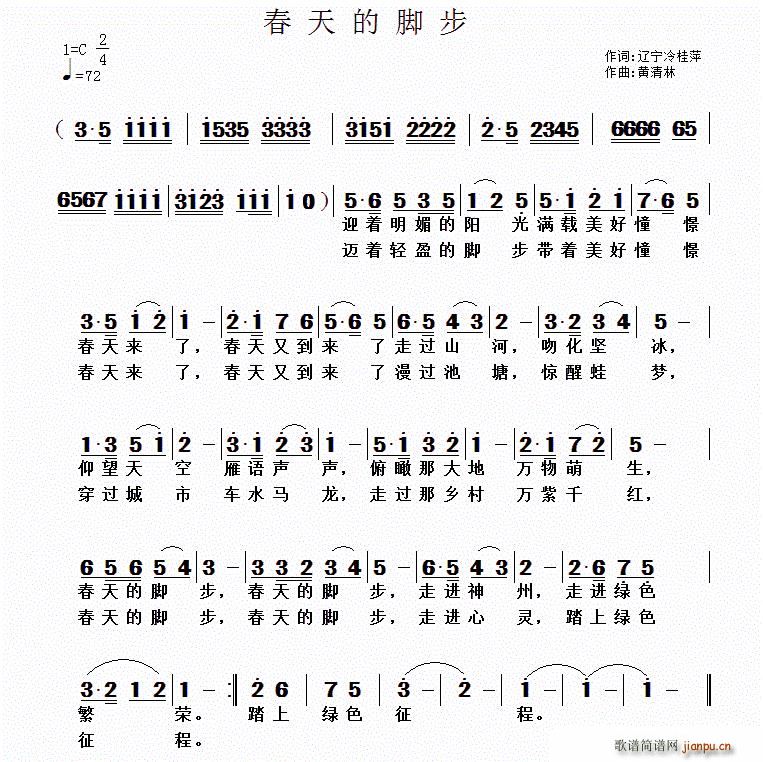 春天的脚步
1=C 2/4
♩=72
作词:辽宁冷桂萍
作曲:黄清林
( 3·5 1111 | 1535 3333 | 3151 2222 | 2·5 2345 | 6666 65 |
6567 1111 | 3123 111 | 10 ) | 5·6 535 | 12 5 | 5·1 21 | 7·6 5 |
迎着明媚的阳 光满载美好憧 憬
迈着轻盈的脚 步带着美好憧 憬
3·5 12 | 1 - | 2·1 76 | 5·6 5 | 6·5 43 | 2 - | 3·2 34 | 5 - |
春天来 了, 春天又到来 了走过山 河, 吻化坚 冰,
春天来 了, 春天又到来 了漫过池 塘, 惊醒蛙 梦,
1·3 51 | 2 - | 3·1 23 | 1 - | 5·1 21 | 1 - | 2·1 72 | 1 - |
仰望天 空 雁语声 声, 俯瞰那大地 万物萌 生,
穿过城 市 车水马 龙, 走过那乡村 万紫千 红,
656 54 | 3 - | 332 34 | 5 - | 6·5 43 | 2 - | 2·6 75 |
春天的脚 步, 春天的脚 步, 走进神 州, 走进绿色
春天的脚 步, 春天的脚 步, 走进心 灵, 踏上绿色
3·2 12 | 1 - :‖ 2 6 | 7 5 | 3 - | 2 - | 1 - | 1 - ‖
繁 荣。 踏上 绿色 征 程。
征 程。
歌谱简谱网 jianpu.cn